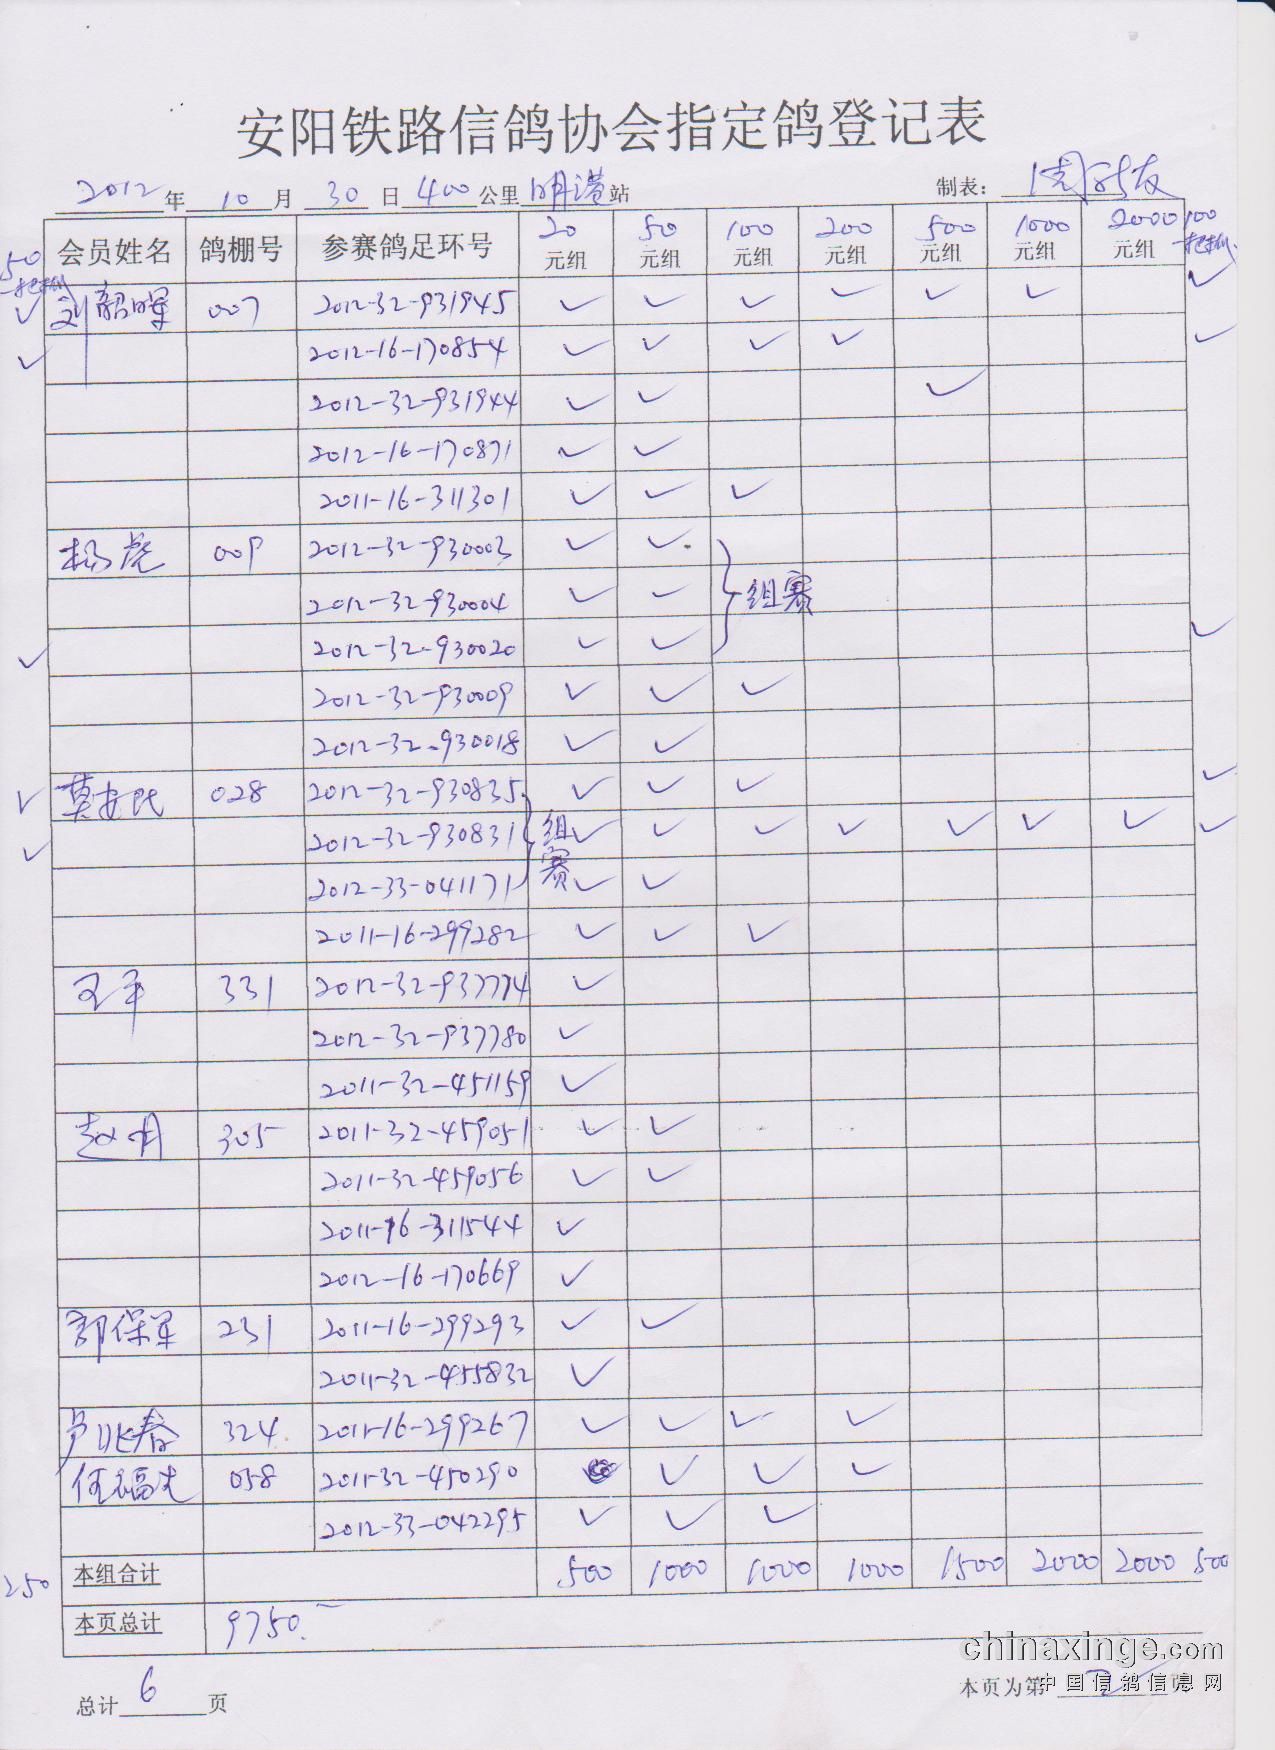 安阳铁路信鸽协会指定鸽登记表
2012年 10月 30日 400公里 明港站 制表：
会员姓名 鸽棚号 参赛鸽足环号 20元组 50元组 100元组 200元组 500元组 1000元组 2000元组 100
50
刘韶晖 007 2012-32-931945 ✓ ✓ ✓ ✓ ✓ ✓ ✓
2012-16-170854 ✓ ✓ ✓ ✓ ✓
2012-32-931944 ✓ ✓ ✓
2012-16-170871 ✓ ✓
2011-16-311301 ✓ ✓ ✓
杨 009 2012-32-930003 ✓ ✓
2012-32-930004 ✓ ✓ 组赛
2012-32-930020 ✓ ✓ ✓
2012-32-930009 ✓ ✓ ✓
2012-32-930018 ✓ ✓
莫安民 028 2012-32-930835 ✓ ✓ ✓ ✓
2012-32-930831 组赛 ✓ ✓ ✓ ✓ ✓ ✓ ✓ ✓
2012-33-041171 ✓ ✓
2011-16-299282 ✓ ✓ ✓
331 2012-32-937774 ✓
2012-32-937780 ✓
2011-32-451159 ✓
赵明 305 2011-32-459051 ✓ ✓
2011-32-459056 ✓ ✓
2011-16-311544 ✓
2012-16-170669 ✓
郭保军 231 2011-16-299293 ✓ ✓
2011-32-455832 ✓
卢兆春 324 2011-16-299267 ✓ ✓ ✓ ✓
何福生 058 2011-32-450290 ✓ ✓ ✓
2012-33-042295 ✓ ✓ ✓
250 本组合计 500 1000 1000 1000 1500 2000 2000 500
本页总计 9750.
总计 6 页 本页为第 2 页
chinaxinge.com
中国信鸽信息网